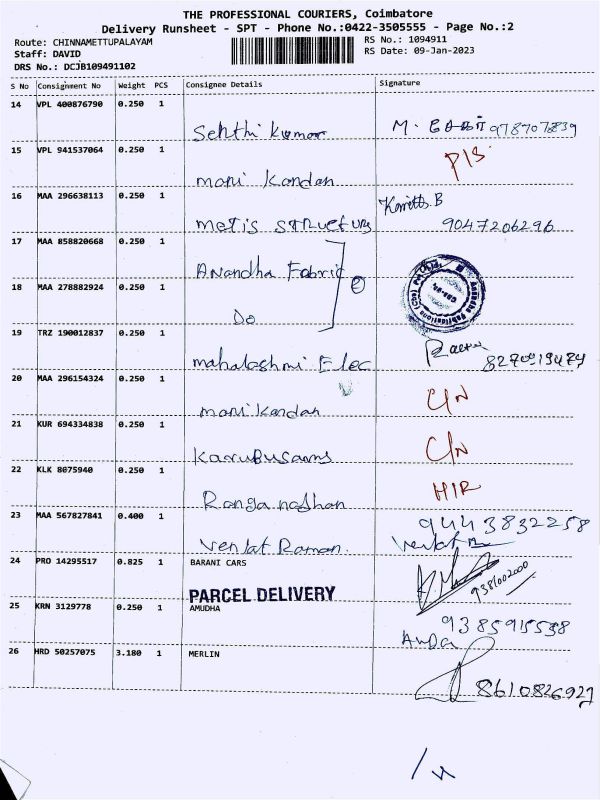 THE PROFESSIONAL COURIERS, Coimbatore
Delivery Runsheet - SPT - Phone No.:0422-3505555 - Page No.:2
Route: CHINNAMETTUPALAYAM RS No.: 1094911
Staff: DAVID RS Date: 09-Jan-2023
DRS No.: DCJB109491102
S No Consignment No Weight PCS Consignee Details Signature
14 VPL 400876790 0.250 1
Sehthi Kumar M. 9787078839
15 VPL 941537064 0.250 1
mani Kandan P/S
16 MAA 296638113 0.250 1
metis structurs 9047206296
17 MAA 858820668 0.250 1
Anandha Fabric
18 MAA 278882924 0.250 1
Do
19 TRZ 190012837 0.250 1
mahalashmi Elec
20 MAA 296154324 0.250 1
mani kandan C/N
21 KUR 694334838 0.250 1
Karubusamy C/N
22 KLK 8075940 0.250 1
Ranganadhan H/R
23 MAA 567827841 0.400 1 9443832258
Venkat Raman. Venkat
24 PRO 14295517 0.825 1 BARANI CARS
PARCEL DELIVERY 9381002000
25 KRN 3129778 0.250 1 AMUDHA
9385915538
26 HRD 50257075 3.180 1 MERLIN
8610826927